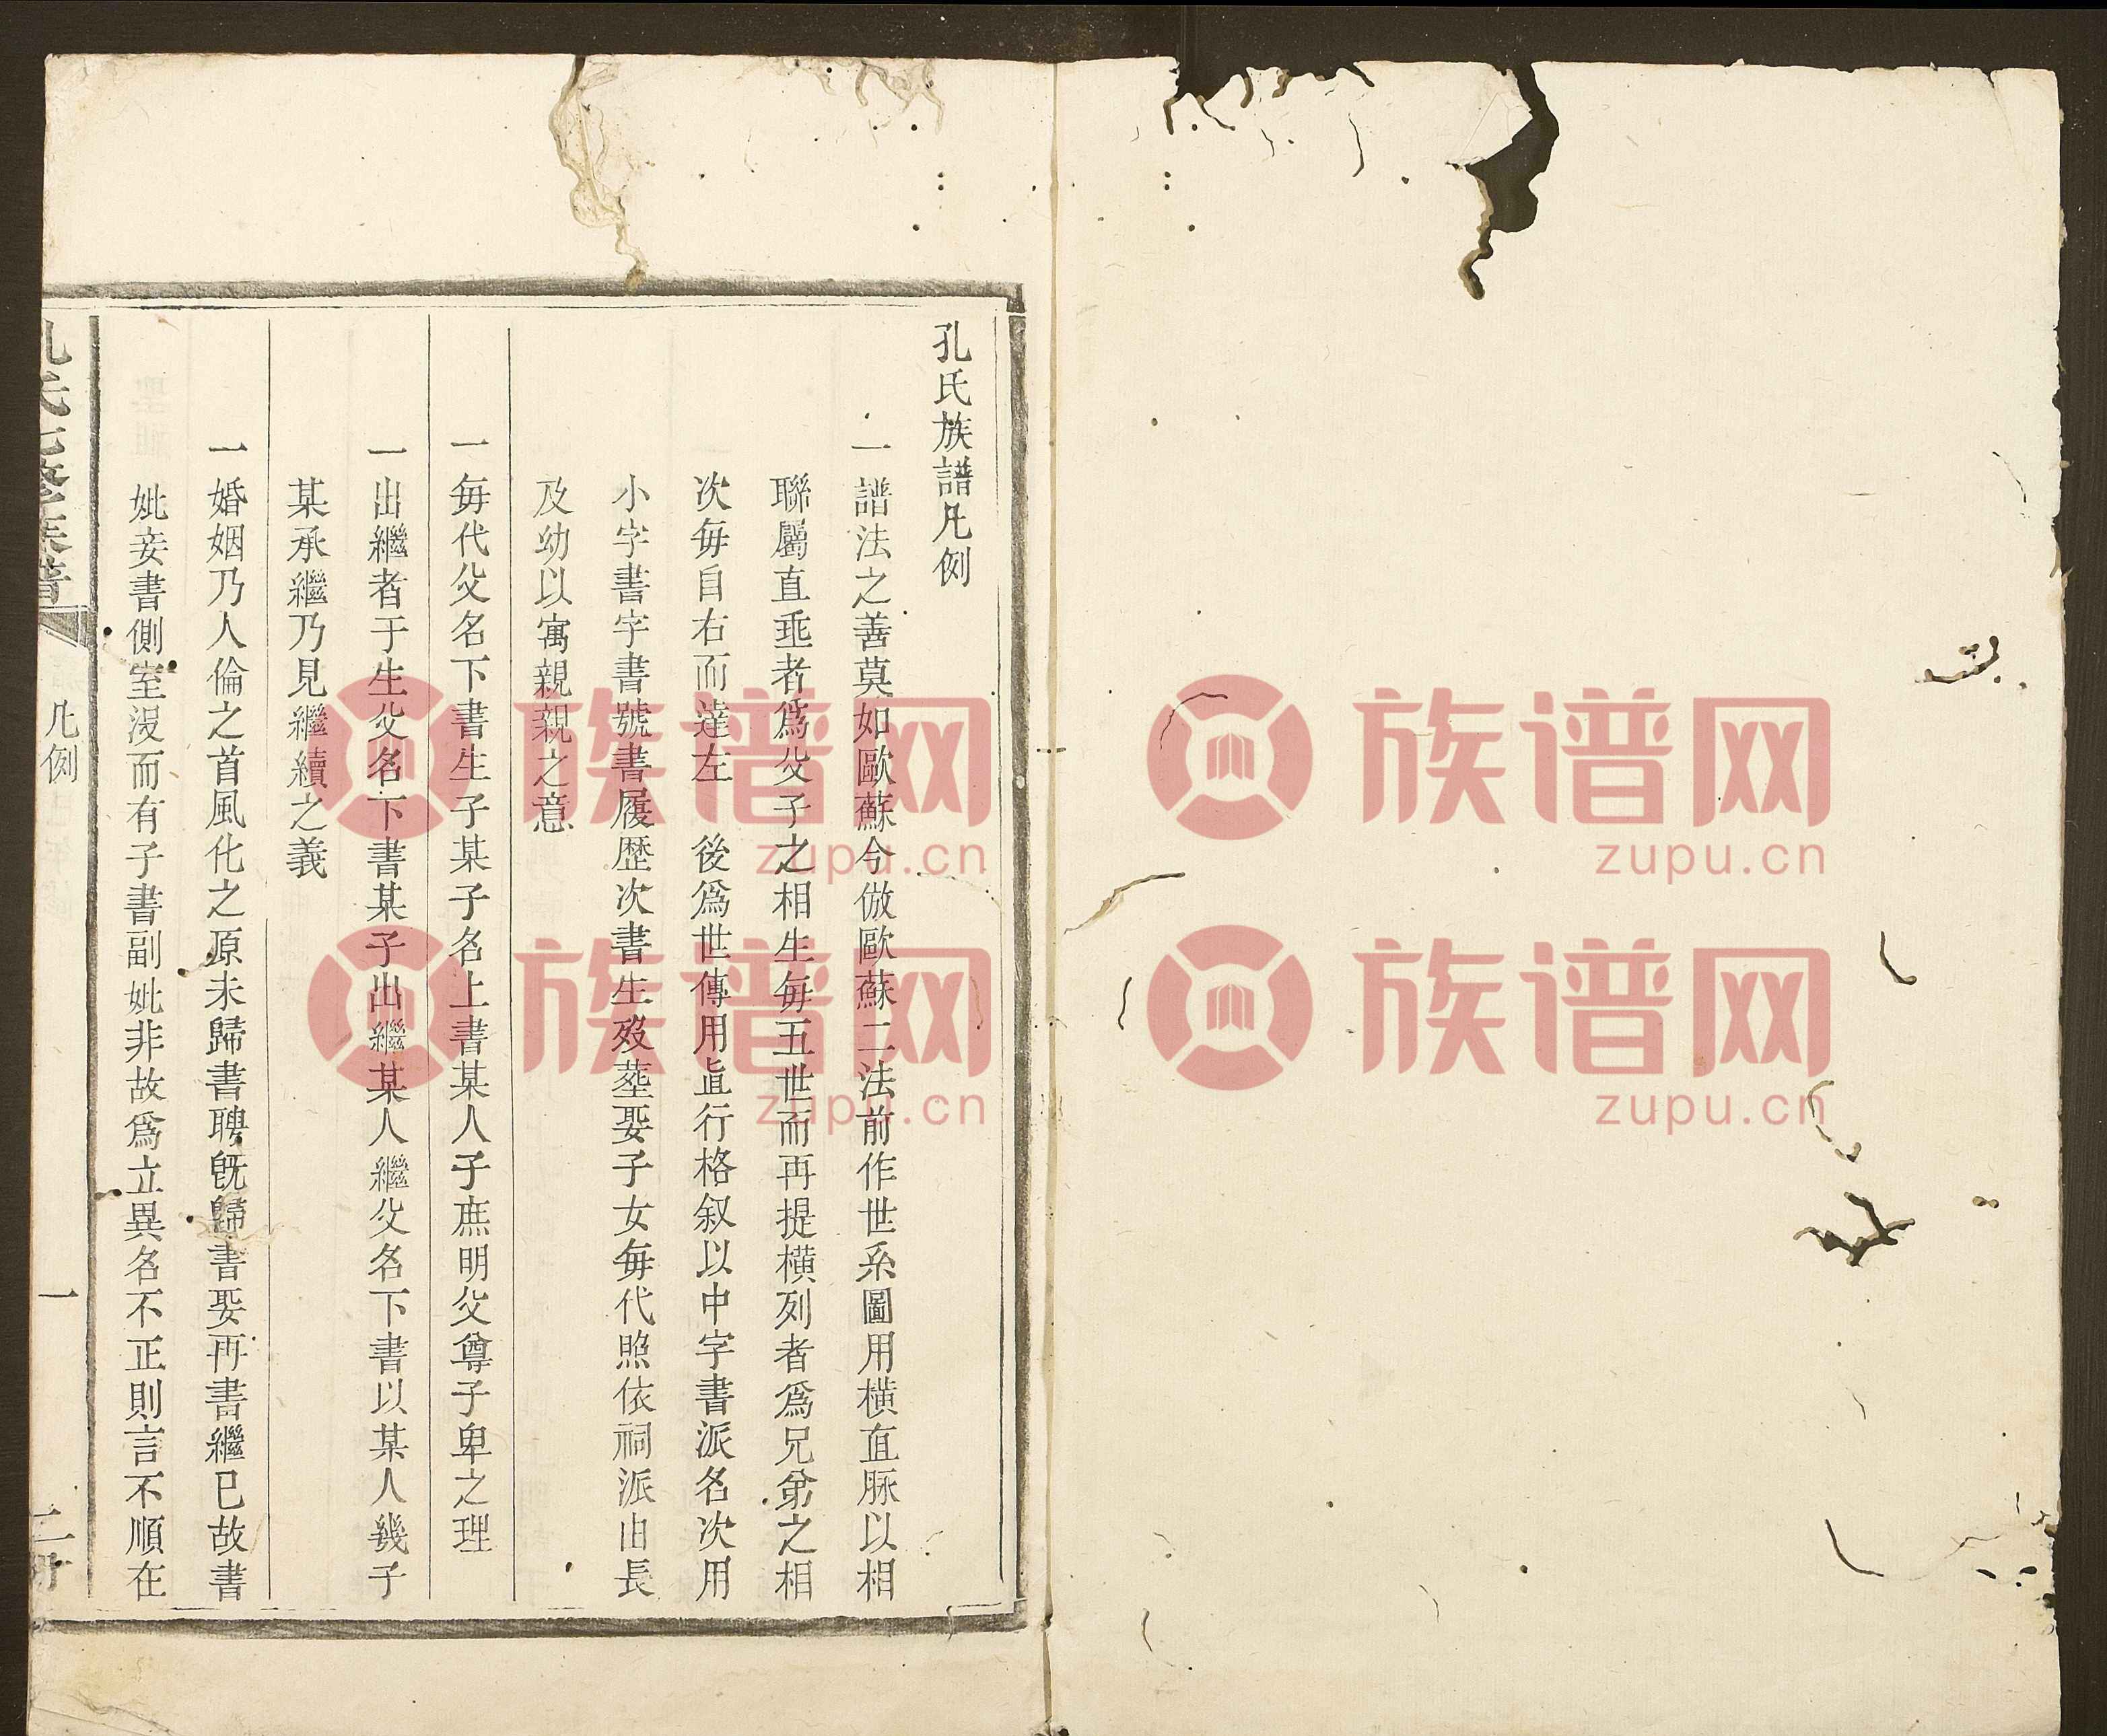 孔氏族譜凡例
一譜法之善莫如歐蘇今倣歐蘇二法前作世系圖用橫直脉以相
聯屬直乖者爲父子之相生毎五世而再提橫列者爲兄弟之相
次毎自右而達左 後爲世傳用直行格叙以中字書派名次用
小字書字書號書履歷次書生歿塟娶子女毎代照依祠派由長
及幼以寓親親之意
一毎代父名下書生子某子名上書某人子庶明父尊子卑之理
一出繼者于生父名下書某子出繼某人繼父名下書以某人幾子
某承繼乃見繼續之義
一婚姻乃人倫之首風化之原未歸書聘旣歸書娶再書繼已故書
妣妾書側室沒而有子書副妣非故爲立異名不正則言不順在
孔氏七修族譜
凡例
一
族谱网
zupu.cn
族谱网
zupu.cn
族谱网
zupu.cn
族谱网
zupu.cn